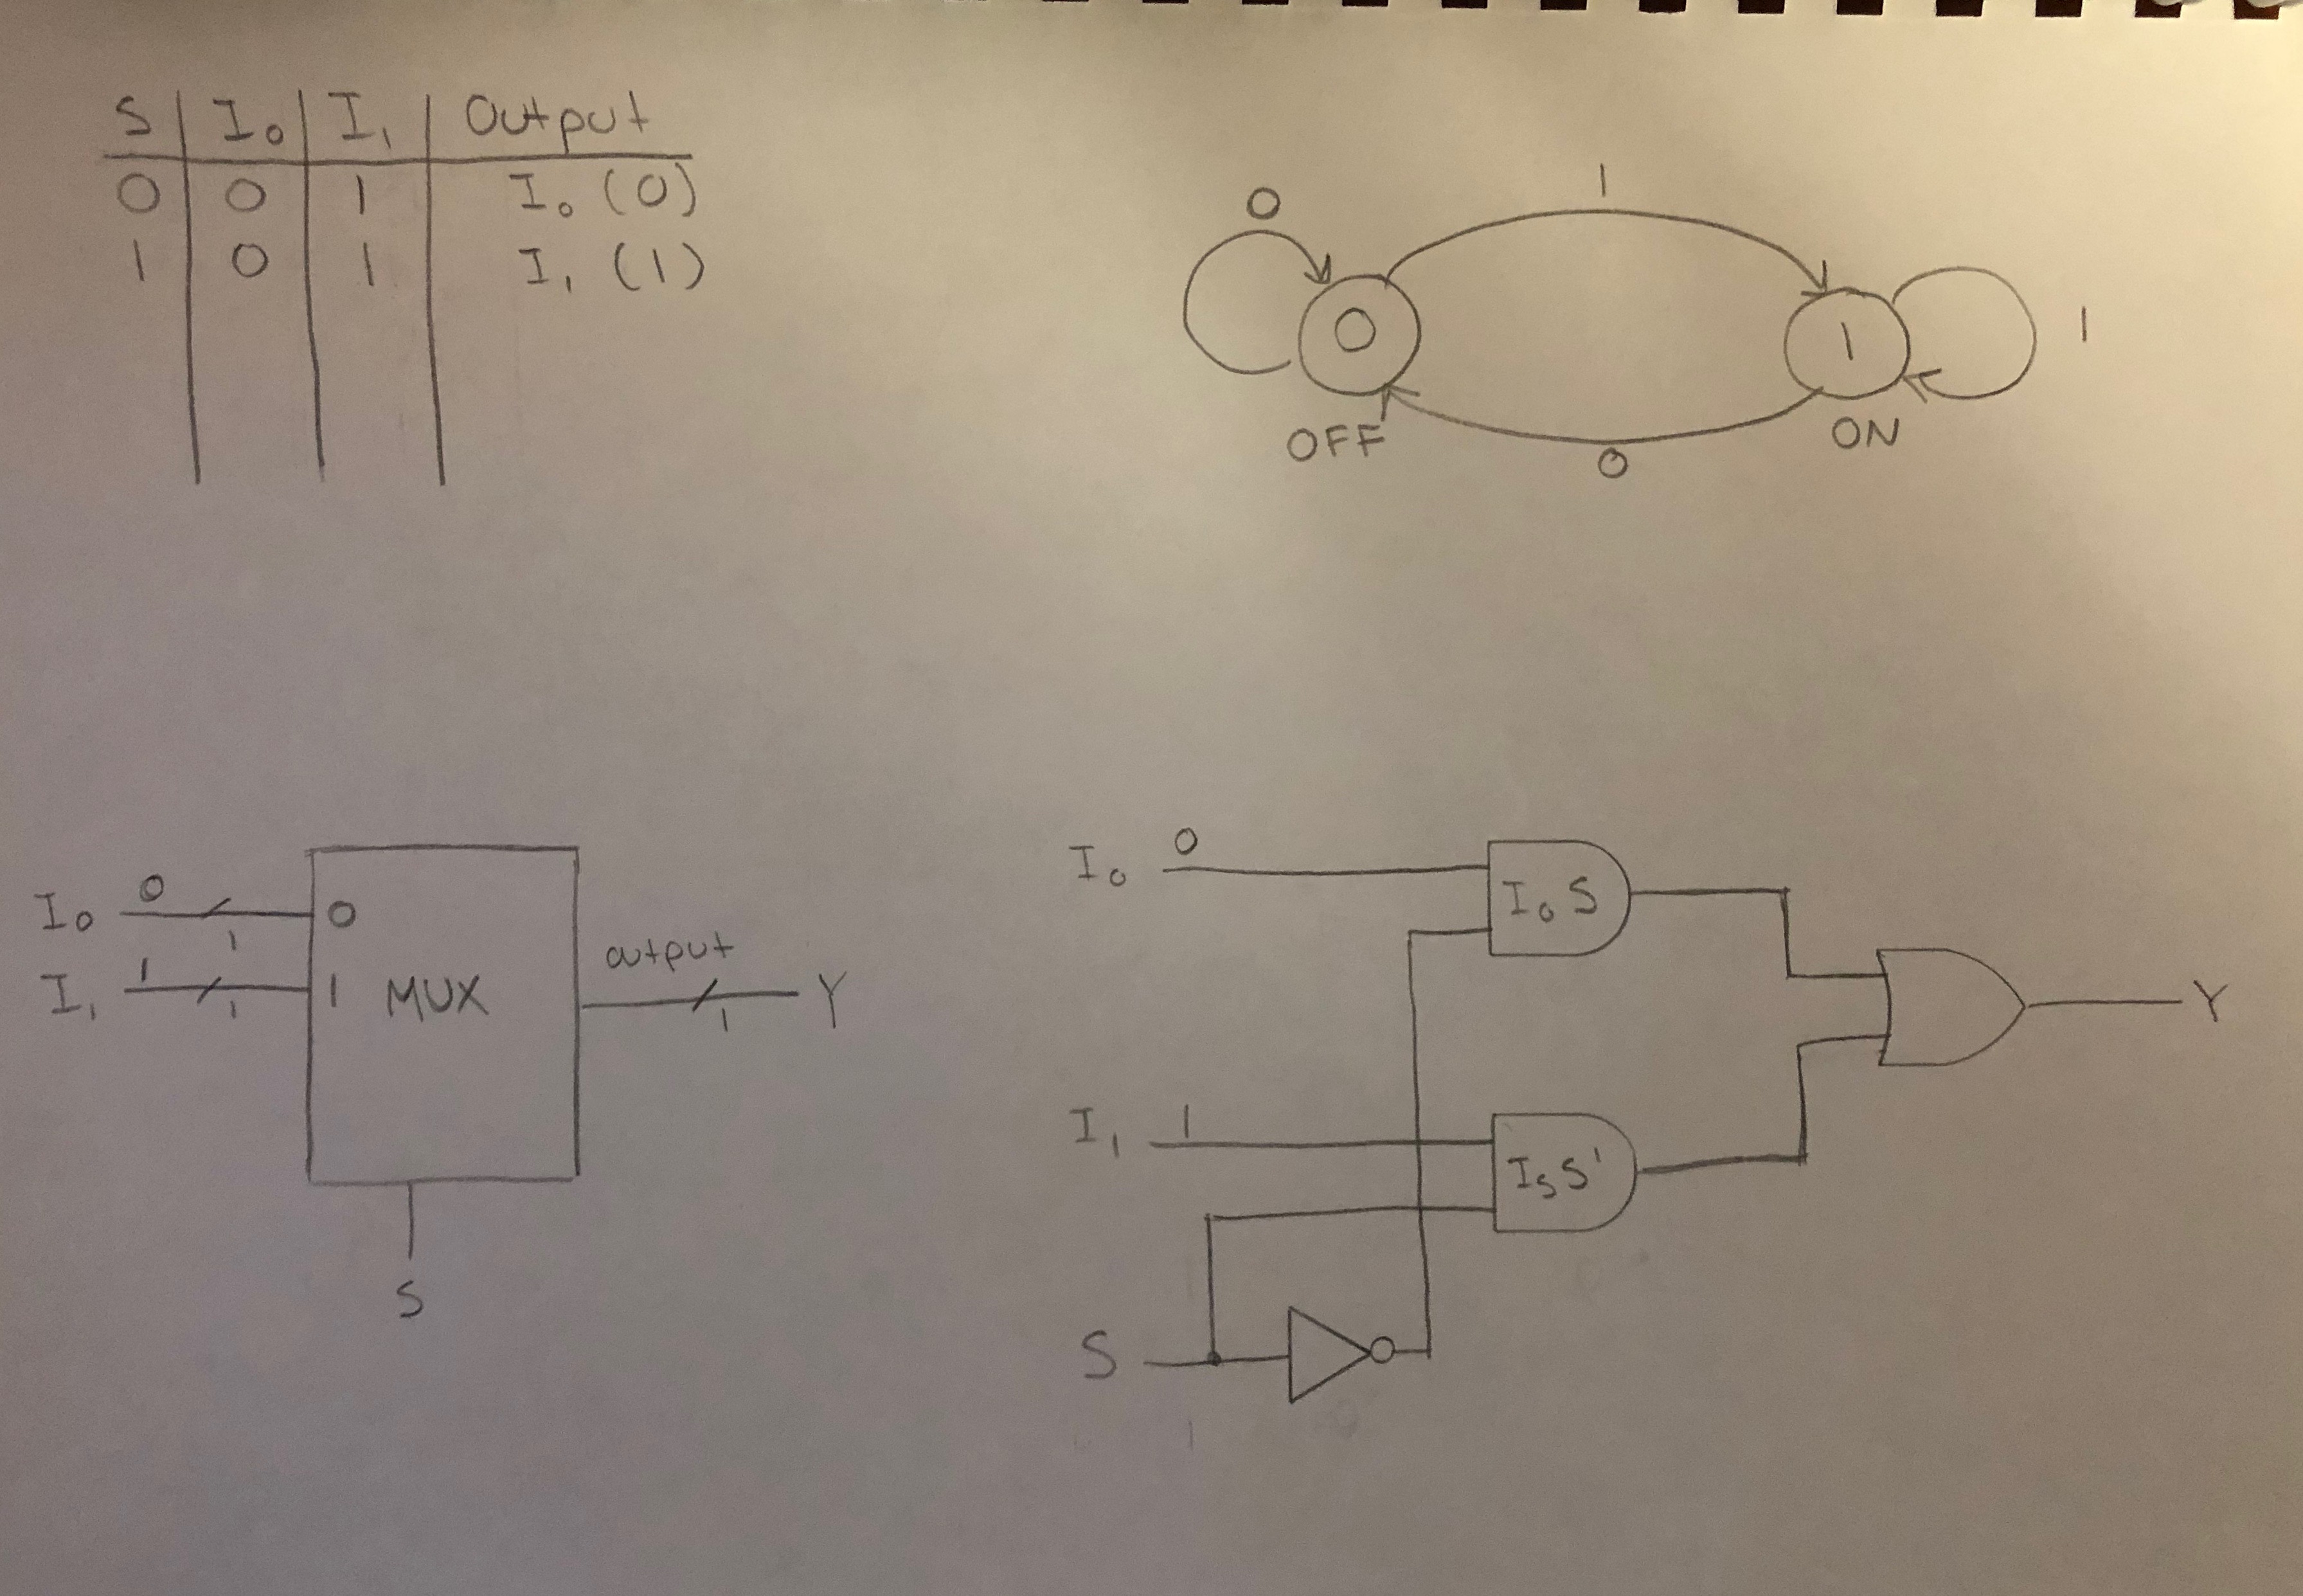 S I₀ I₁ Output
0 0 1 I₀ (0)
1 0 1 I₁ (1)
0 1
0 1 1
OFF 0 ON
I₀ 0 1 0
I₁ 1 1 1 MUX output 1 Y
S
I₀ 0 I₀ S
Y
I₁ 1 I₅ S'
S